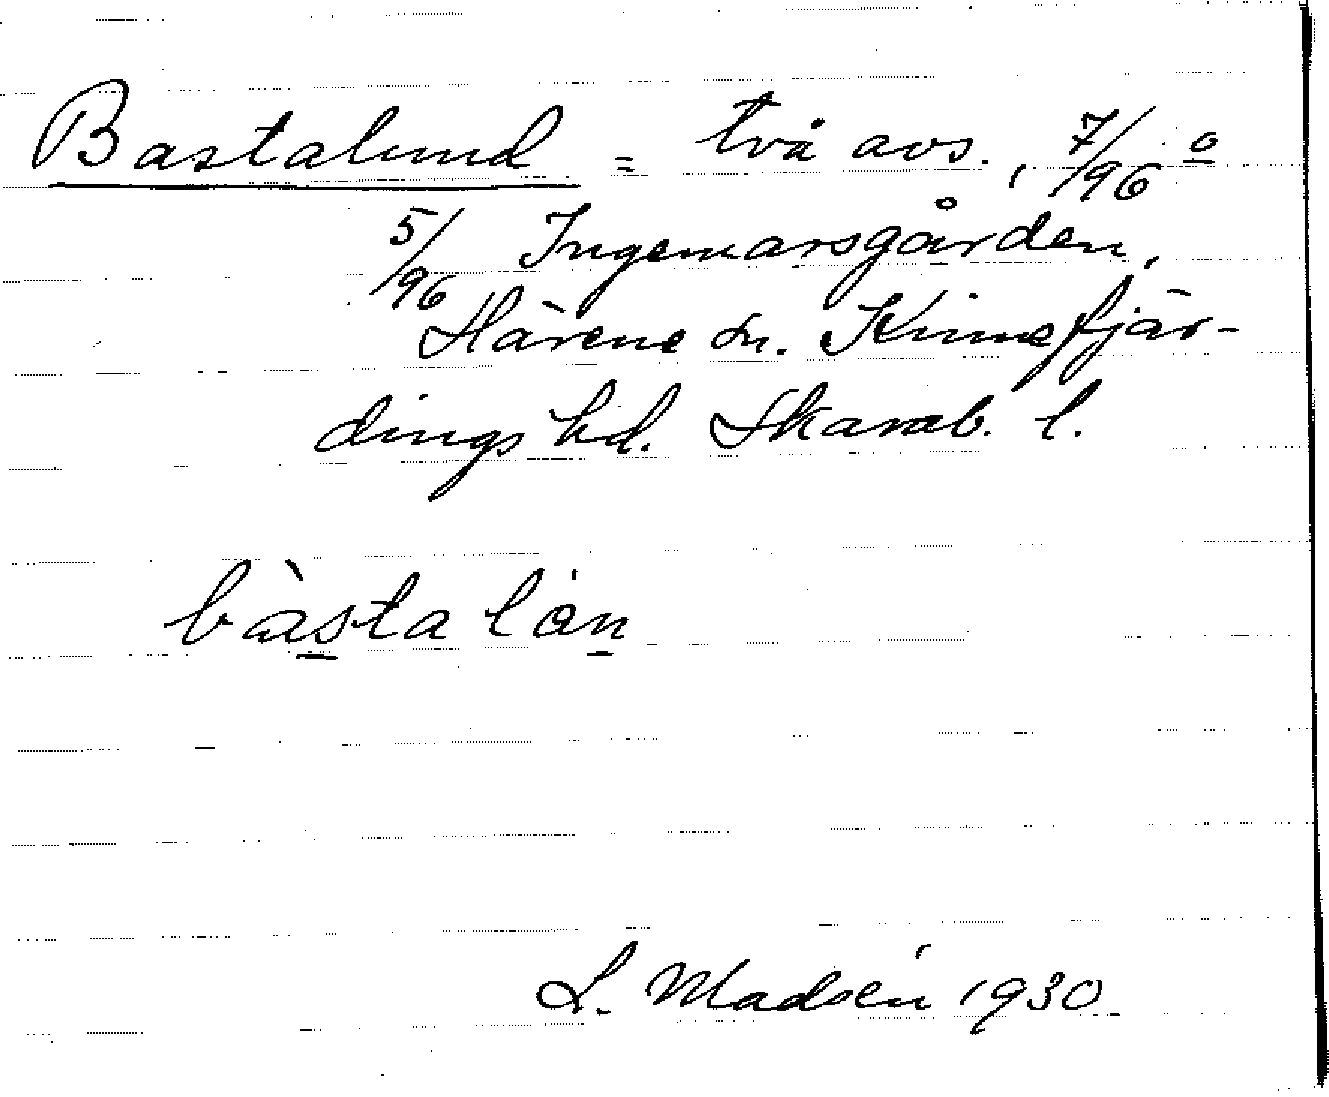 Bastalund = två avs., 7/96 o
5/96 Ingemarsgården,
Härene sn. Kinnefjär-
dings hd. Skarab. l.
bàstaló̀n
L. Madsén 1930